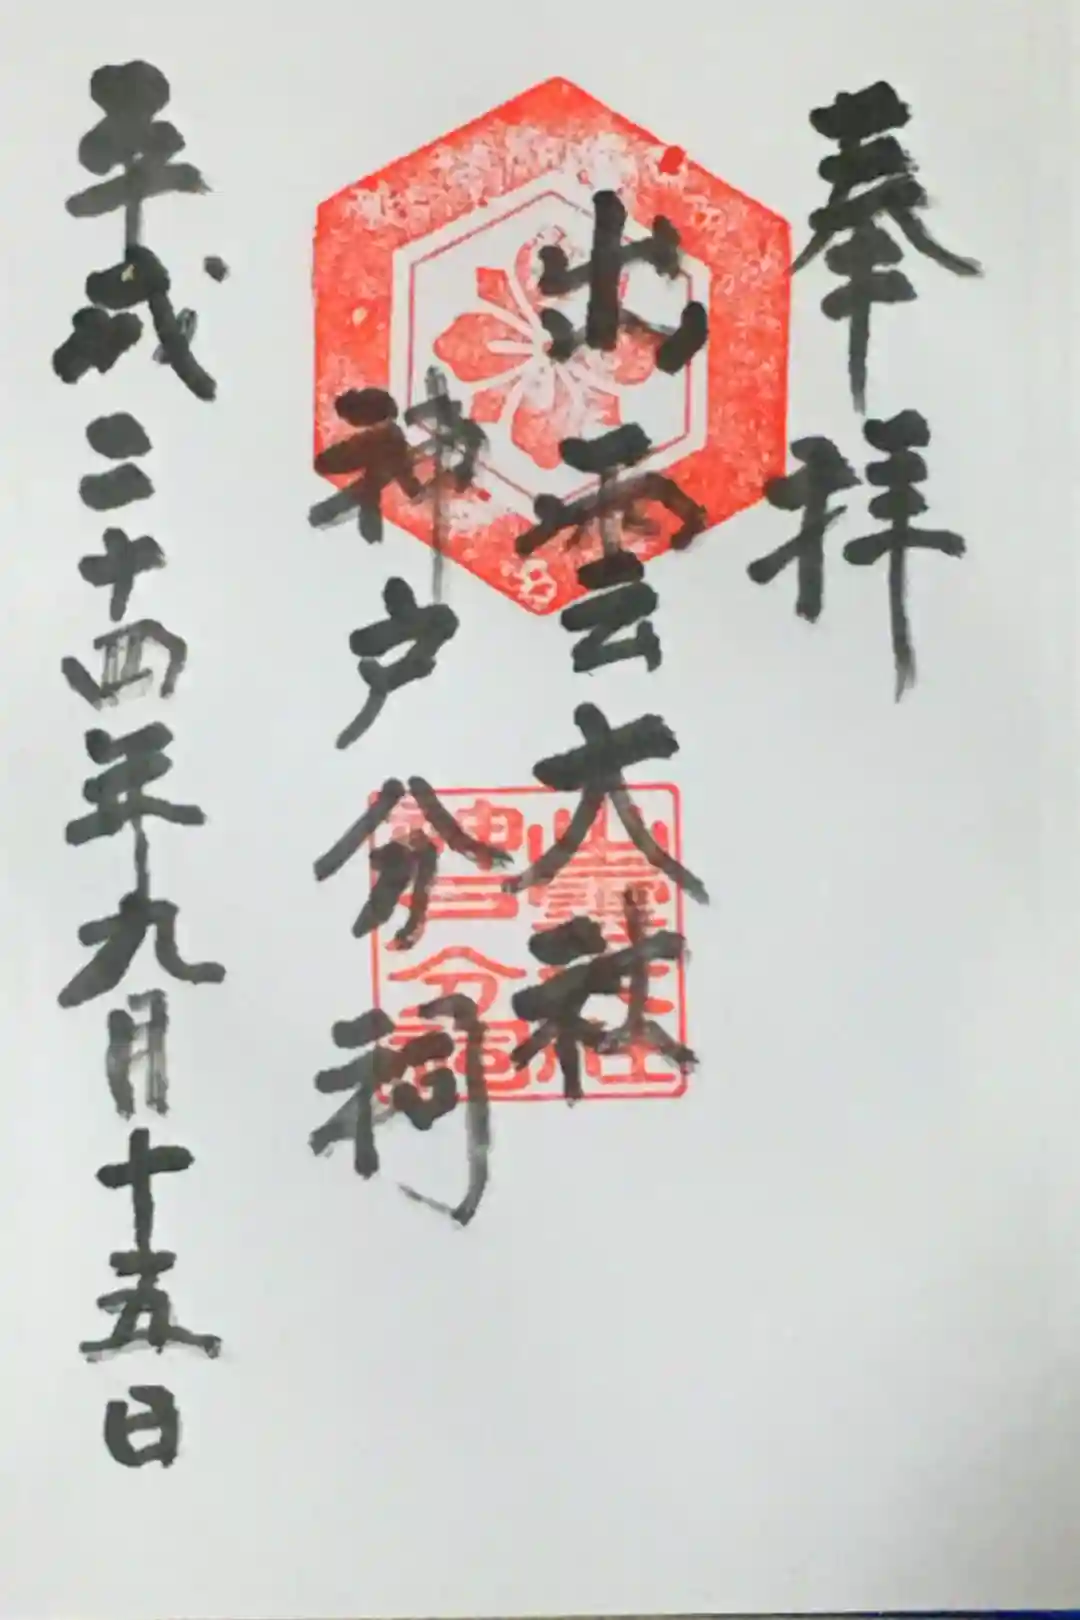 奉拝
出雲大社
神戸分祠
平成二十四年九月十五日
出雲大社
神戸分祠